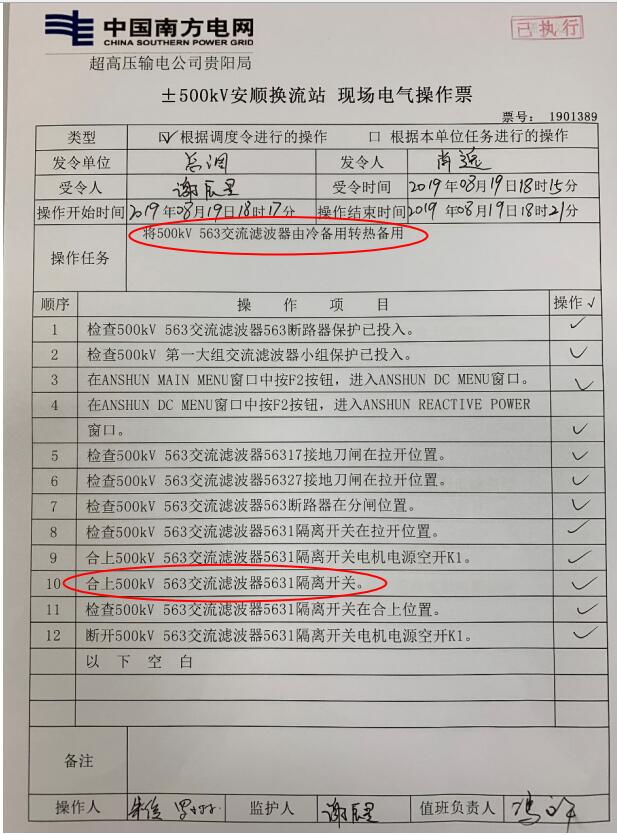 中国南方电网
CHINA SOUTHERN POWER GRID
已执行
超高压输电公司贵阳局
±500kV安顺换流站 现场电气操作票
票号： 1901389
类型 ☑ 根据调度令进行的操作 □ 根据本单位任务进行的操作
发令单位 总调 发令人
受令人 谢辰昱 受令时间 2019年08月19日18时15分
操作开始时间 2019年08月19日18时17分 操作结束时间 2019年08月19日18时21分
操作任务 将500kV 563交流滤波器由冷备用转热备用
顺序 操 作 项 目 操作√
1 检查500kV 563交流滤波器563断路器保护已投入。 ✓
2 检查500kV 第一大组交流滤波器小组保护已投入。 ✓
3 在ANSHUN MAIN MENU窗口中按F2按钮，进入ANSHUN DC MENU窗口。 ✓
4 在ANSHUN DC MENU窗口中按F2按钮，进入ANSHUN REACTIVE POWER
窗口。 ✓
5 检查500kV 563交流滤波器56317接地刀闸在拉开位置。 ✓
6 检查500kV 563交流滤波器56327接地刀闸在拉开位置。 ✓
7 检查500kV 563交流滤波器563断路器在分闸位置。 ✓
8 检查500kV 563交流滤波器5631隔离开关在拉开位置。 ✓
9 合上500kV 563交流滤波器5631隔离开关电机电源空开K1。 ✓
10 合上500kV 563交流滤波器5631隔离开关。 ✓
11 检查500kV 563交流滤波器5631隔离开关在合上位置。 ✓
12 断开500kV 563交流滤波器5631隔离开关电机电源空开K1。 ✓
以 下 空 白
备注
操作人 监护人 谢辰昱 值班负责人